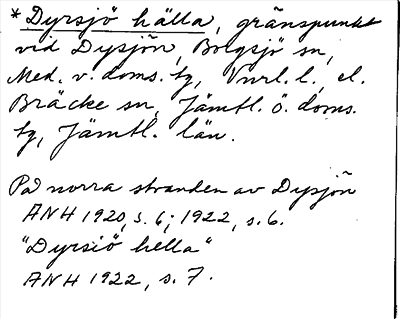 *Dyrsjö hälla, gränspunkt
vid Dysjön, Borgsjö sn,
Med. v. doms. tg, Vnrl. l., el.
Bräcke sn, Jämtl. ö. doms.
tg, Jämtl. län.
På norra stranden av Dysjön
ANH 1920, s. 6; 1922, s. 6.
"Dyrsiö hella"
ANH 1922, s. 7.